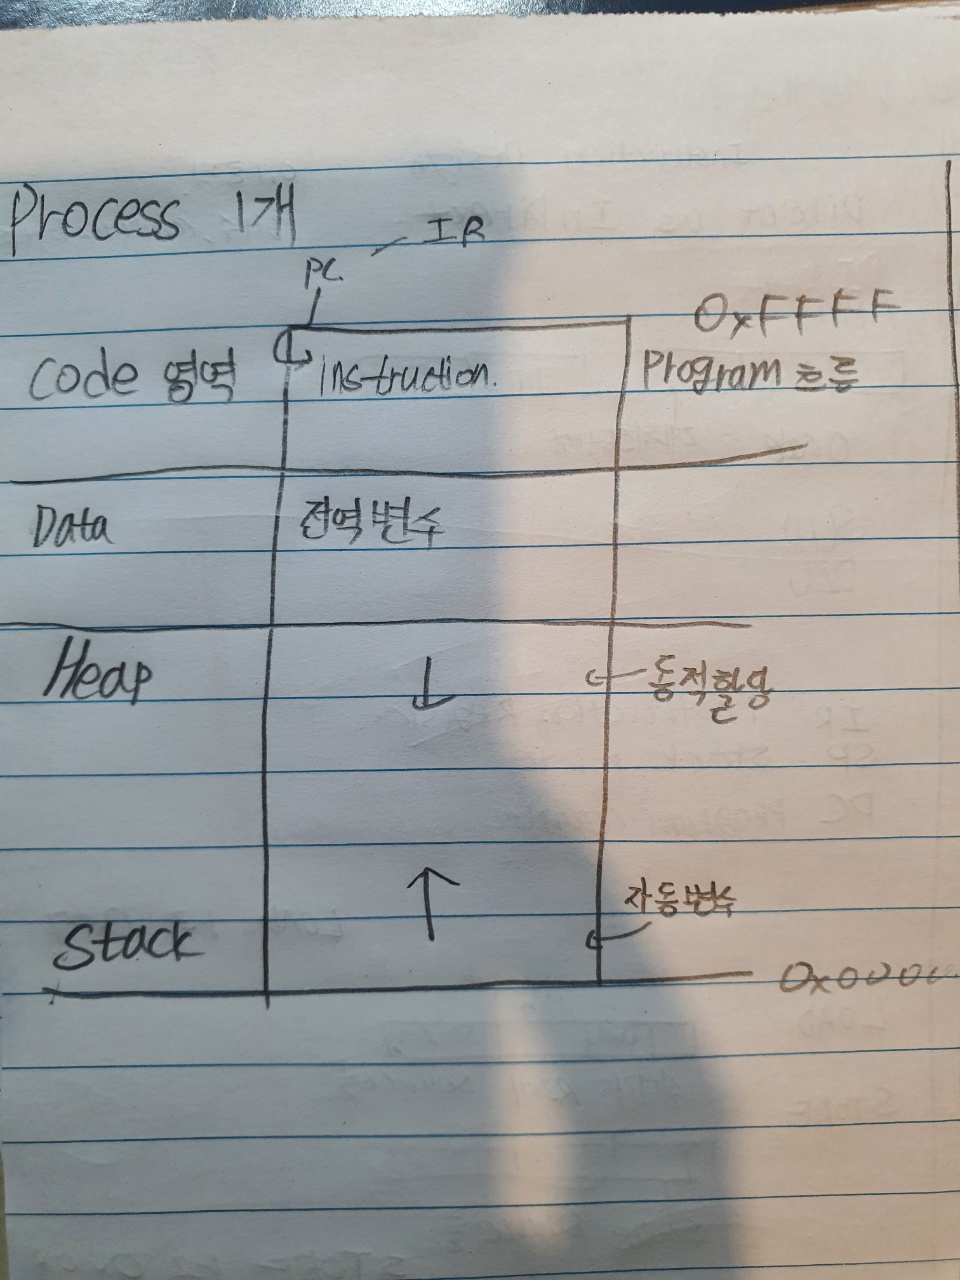 Process 1개
PC. IR
0xFFFF
Code 영역 instruction. Program 흐름
Data 전역변수
Heap 동적할당
자동변수
Stack
0x0000